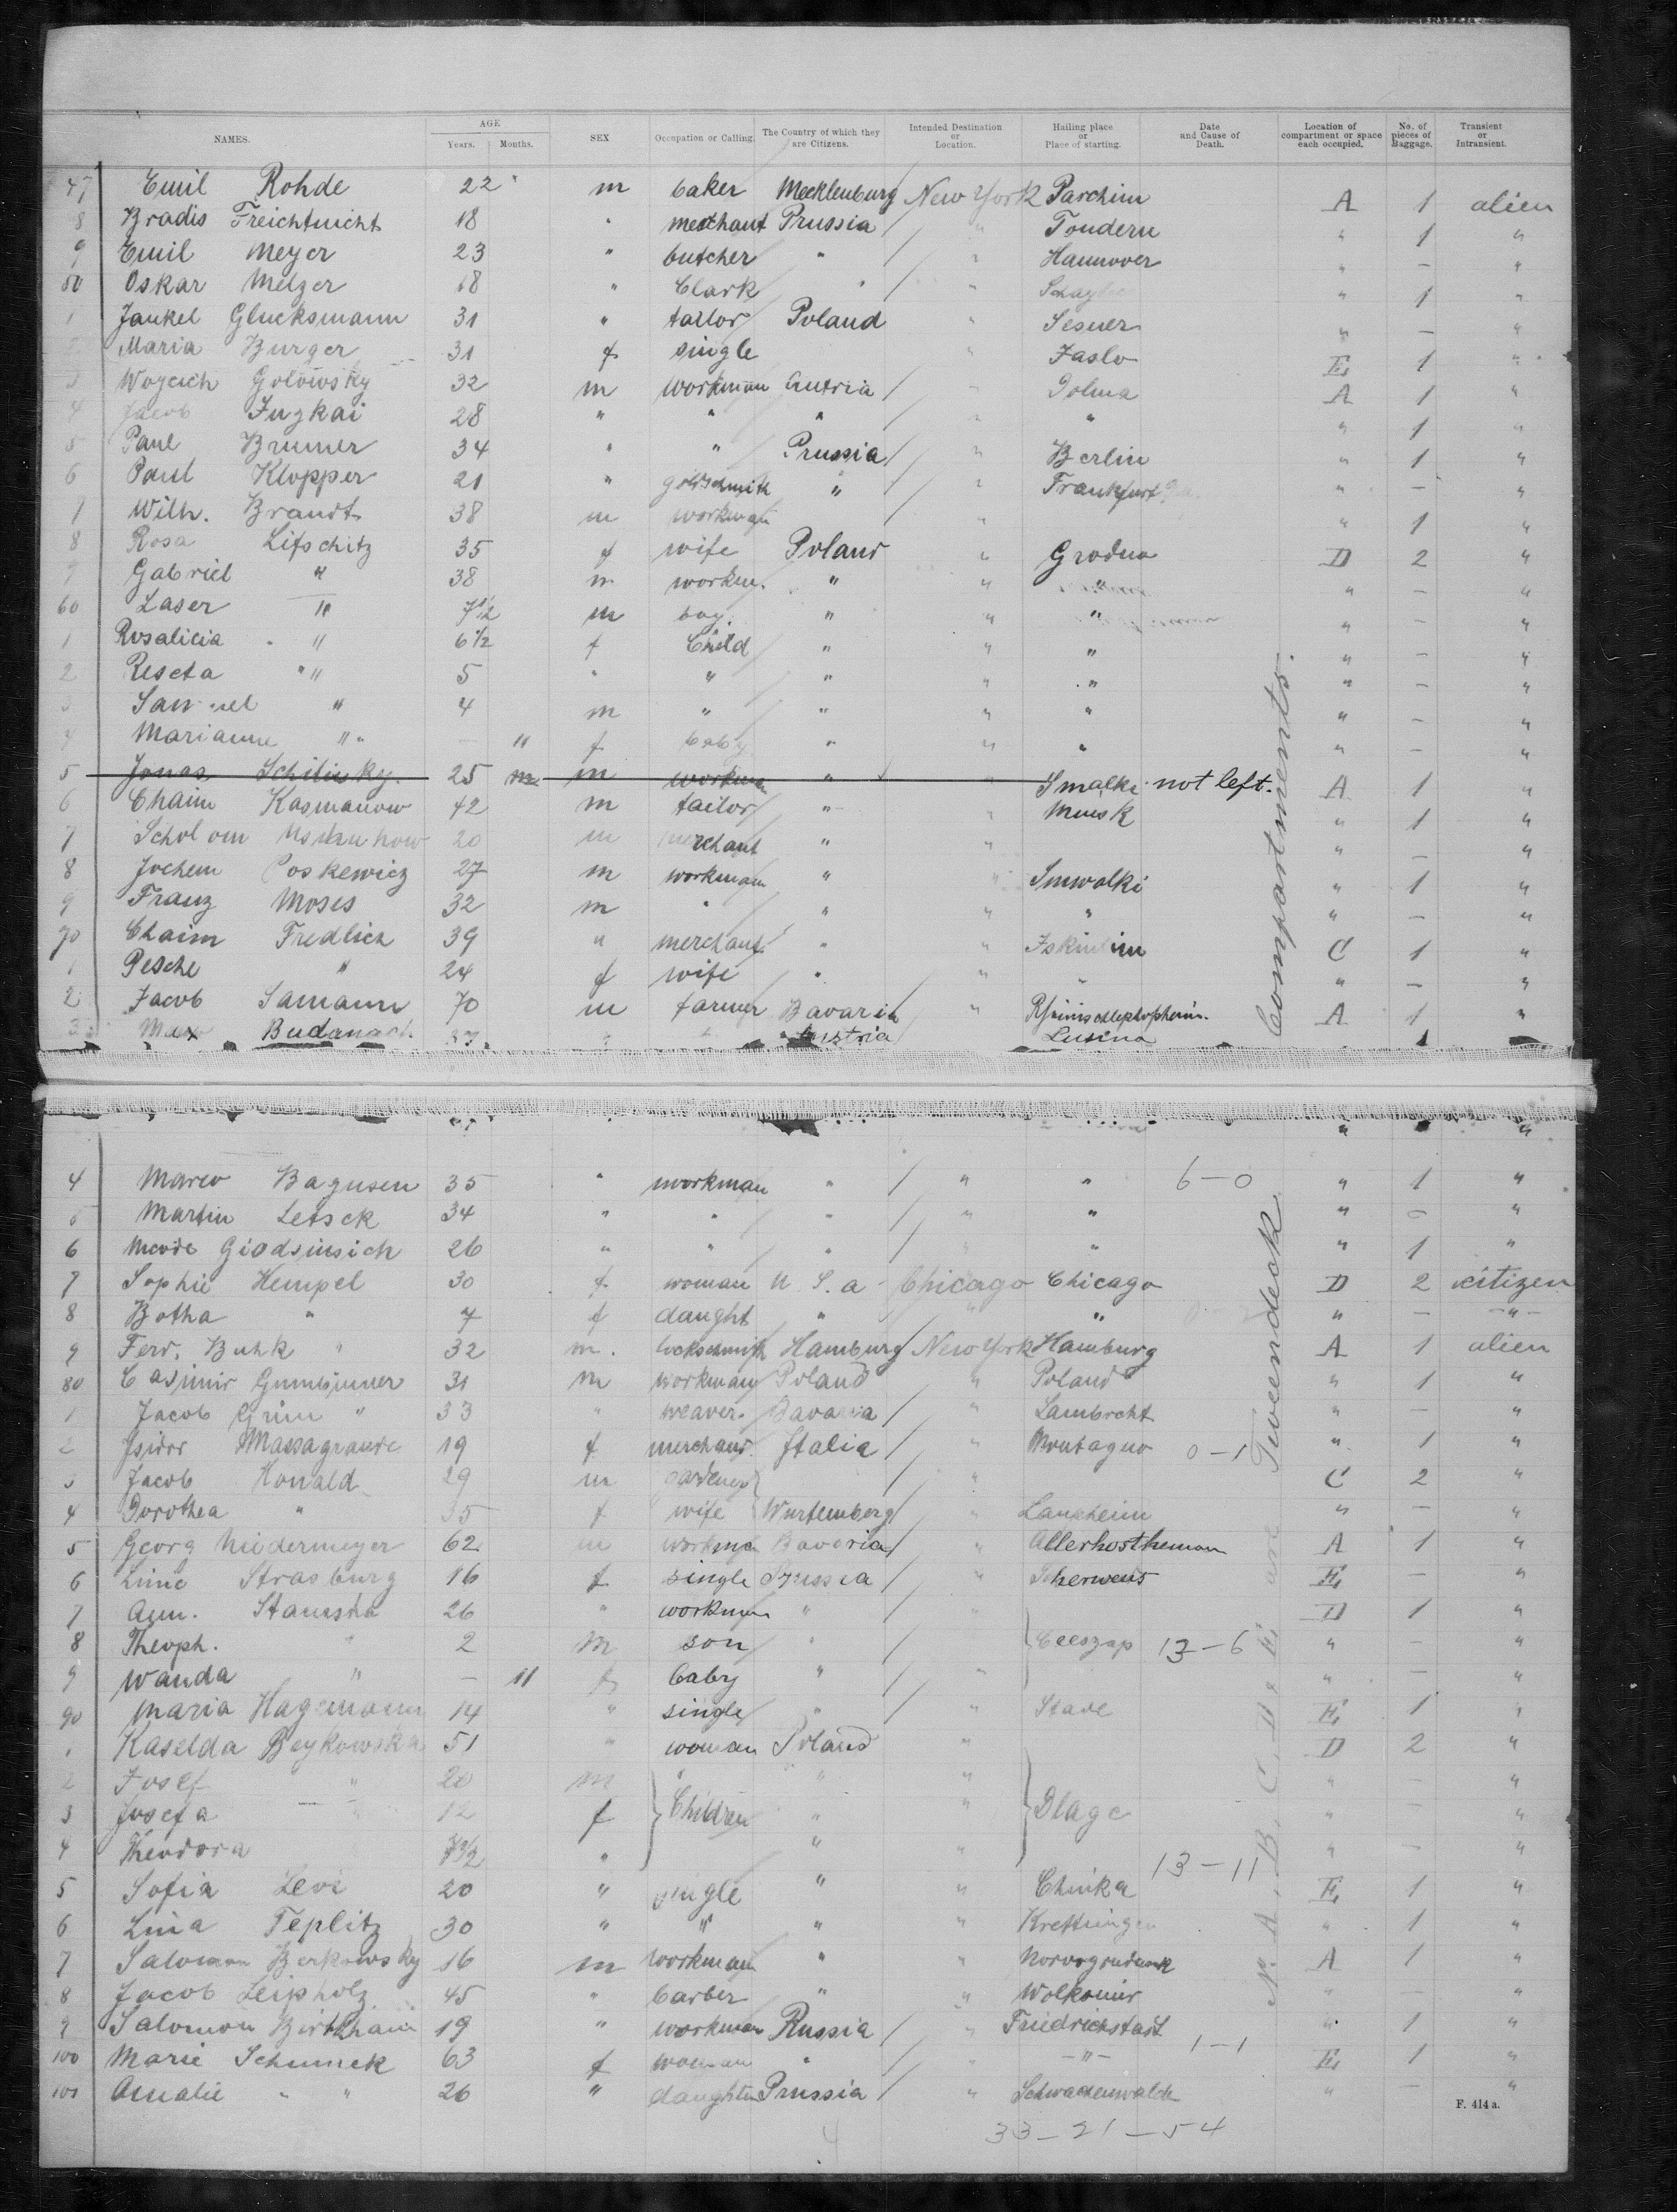 NAMES. AGE Years. Months. SEX Occupation or Calling. The Country of which they are Citizens. Intended Destination or Location. Hailing place or Place of starting. Date and Cause of Death. Location of compartment or space each occupied. No. of pieces of Baggage. Transient or Intransient.
47 Emil Rohde 22 m baker Mecklenburg New York Parchim A 1 alien
8 Bradis Freichtnicht 18 " merchant Prussia " Tondern " 1 "
9 Emil Meyer 23 " butcher " " Hannover " — "
50 Oskar Melzer 18 " Clark " " " 1 "
1 Jankel Glucksmann 31 " tailor Poland " Sesner " — "
2 Maria Burger 31 f single " Jaslo E 1 "
3 Woycich Golowsky 32 m workman Austria " Dolma A 1 "
4 Jacob Juzkai 28 " " " " " " 1 "
5 Paul Brumer 34 " " Prussia " Berlin " 1 "
6 Paul Klopper 21 " goldschmith " " Frankfurt " — "
7 Wilh. Brandt 38 m workman " " 1 "
8 Rosa Lifschitz 35 f wife Poland " Grodno D 2 "
9 Gabriel " 38 m workm. " " " " — "
60 Laser " 7 1/2 m boy. " " " " — "
1 Rosalicia " 6 1/2 f Child " " " " — "
2 Reseta " 5 " " " " " " — "
3 Samuel " 4 m " " " " " — "
4 Marianne " — 11 f baby " " " " — "
5 Jonas Schilinky. 25 m m workman " " Smalki not left. A 1 "
6 Chaim Kasmanow 42 m tailor " " Minsk " 1 "
7 Scholom 20 m merchant " " " — "
8 Jochem Poskewicz 27 m workman " " Suwalki " 1 "
9 Franz Moses 32 m " " " " " — "
70 Chaim Fredlich 39 " merchant " " C 1 "
1 Pesche " 24 f wife " " " " — "
2 Jacob Samann 70 m farmer Bavaria " A 1 "
3 Max Budanach. 37 Austria Lusino
4 Marco Bagusen 35 " workman " " " 6-0 " 1 "
5 Martin Letsck 34 " " " " " " — "
6 Giodsinsich 26 " " " " " " 1 "
7 Sophie Hempel 30 f woman U. S. a Chicago Chicago D 2 citizen
8 Botha " 7 f daught " " " " — "
9 Ferd. Buhk " 32 m. lockschmith Hamburg New York Hamburg A 1 alien
80 Casimir Gumbinner 31 m workman Poland " Poland " 1 "
1 Jacob Grim " 33 " weaver. Bavaria " Lambrcht " — "
2 Isidor Massagrande 19 f merchand. Italia " Montagno 0-1 " 1 "
3 Jacob Konald 29 m gardener " C 2 "
4 Dorothea " 35 f wife Wurtemberg " Laupheim " — "
5 Georg Niedermeyer 62 m workman Bavaria " A 1 "
6 Line Strasburg 16 f single Prussia " E —
7 Ann. 26 " workman " " D 1 "
8 Theoph. " 2 m son " " Ceeszap 13-6 " — "
9 Wanda " — 11 f baby " " " — "
90 Maria Hagemann 14 " single " " Stade E 1 "
1 Kaselda Beykowska 51 " woman Poland " D 2 "
2 Josef " 20 m " " " — "
3 Josefa " 12 f Children " " Dlage " — "
4 Theodora " " " " — "
13-11
5 Sofia Levi 20 " single " " Chinka E 1 "
6 Lina Teplitz 30 " " " " Krettingen " 1 "
7 Salomon Berkowsky 16 m workman " " A 1 "
8 Jacob Leipholz 45 " barber " " Wolkomir " — "
9 Salomon Birkhain 19 " workman Russia " Friedrichstadt " 1 "
1-1
100 Marie Schimek 63 f woman " " —"— E 1 "
101 Amalie " " 26 " daughter Prussia " " — "
F. 414 a.
33-21-54
A, B, C, D & E are Tweendeck Compartments.